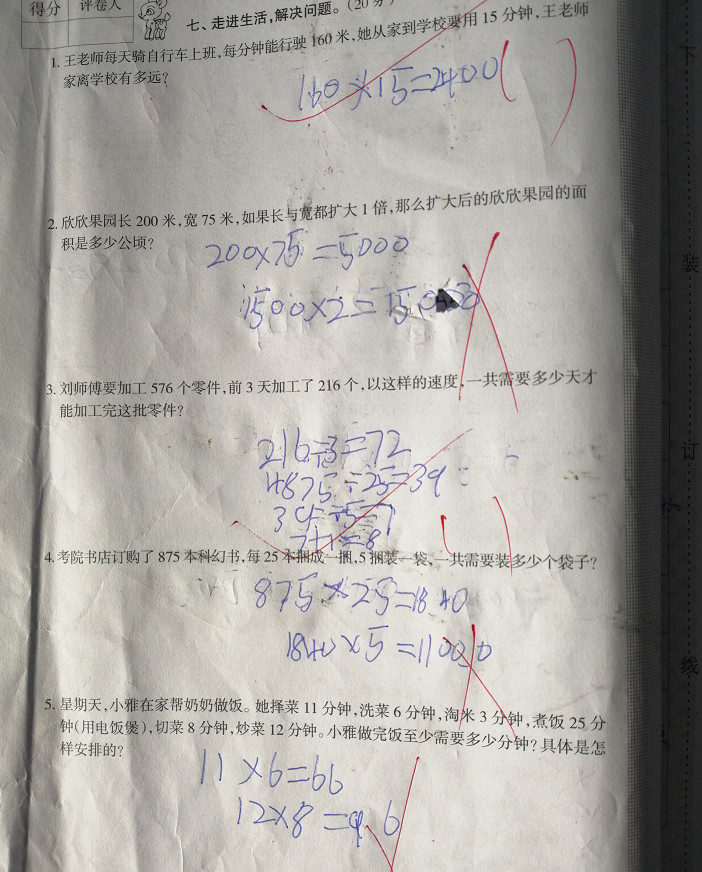 得分 评卷人
七、走进生活,解决问题。(20分)
1. 王老师每天骑自行车上班,每分钟能行驶160米,她从家到学校要用15分钟,王老师
家离学校有多远?
160×15=2400( )
2. 欣欣果园长200米,宽75米,如果长与宽都扩大1倍,那么扩大后的欣欣果园的面
积是多少公顷?
200×75=5000
1500×2=
3. 刘师傅要加工576个零件,前3天加工了216个,以这样的速度,一共需要多少天才
能加工完这批零件?
216÷3=72
4875÷25=39
7+1=8
4. 考院书店订购了875本科幻书,每25本捆成一捆,5捆装一袋,一共需要装多少个袋子?
875×25=1840
1840×5=11000
5. 星期天,小雅在家帮奶奶做饭。她择菜11分钟,洗菜6分钟,淘米3分钟,煮饭25分
钟(用电饭煲),切菜8分钟,炒菜12分钟。小雅做完饭至少需要多少分钟?具体是怎
样安排的?
11×6=66
12×8=96
下
装
订
线